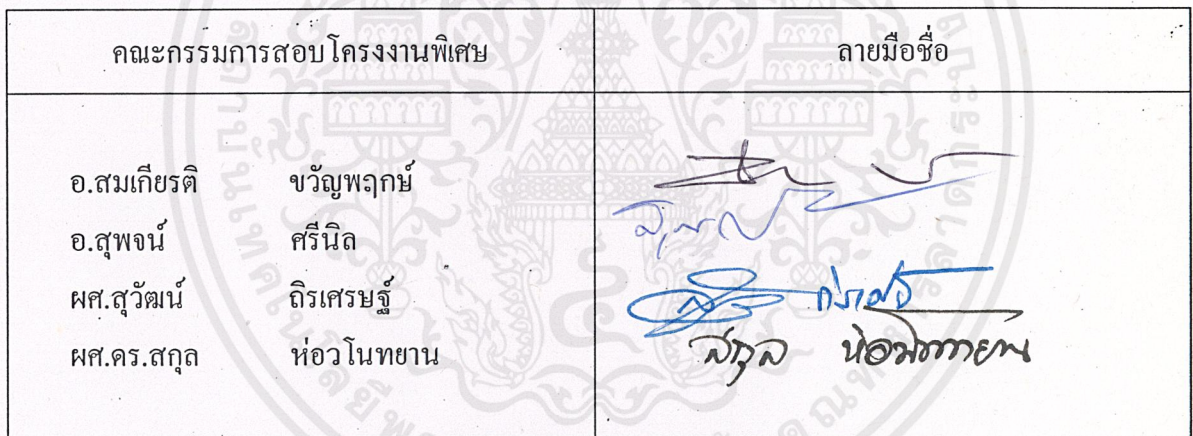 คณะกรรมการสอบโครงงานพิเศษ ลายมือชื่อ
อ.สมเกียรติ ขวัญพฤกษ์
อ.สุพจน์ ศรีนิล
ผศ.สุวัฒน์ ถิรเศรษฐ์
ผศ.ดร.สกุล ห่อวโนทยาน
สกุล ห่อวโนทยาน